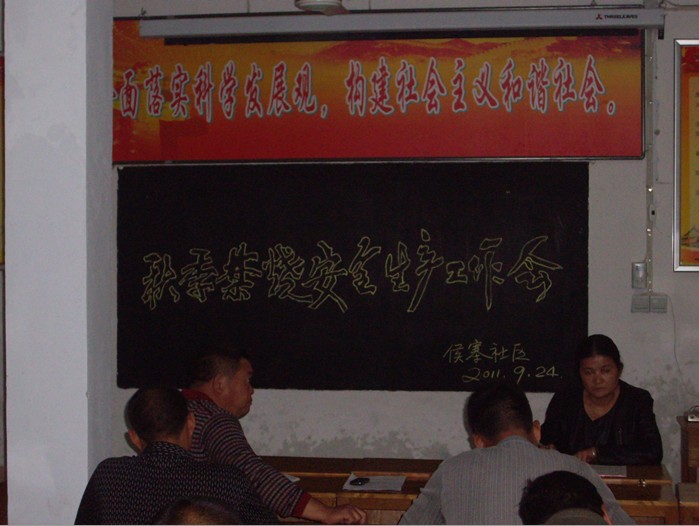 THREELEAVES
面落实科学发展观，构建社会主义和谐社会。
秋季禁烧安全生产工作会
侯寨社区
2011.9.24